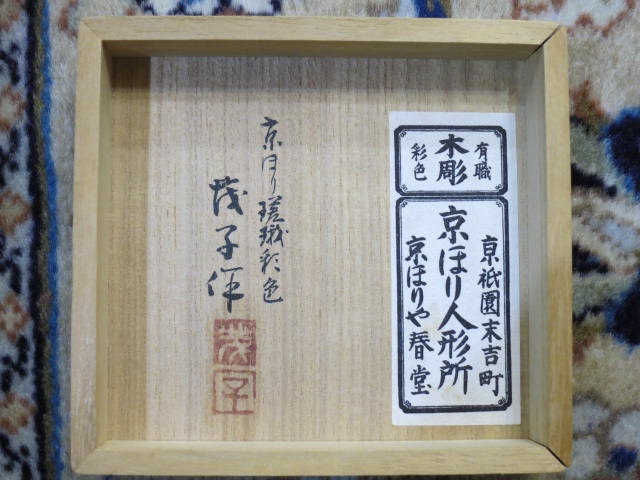 有職
木彫
彩色
京祇園末吉町
京ほり人形所
京ほりや春堂
京ほり彩色
茂子作
茂子